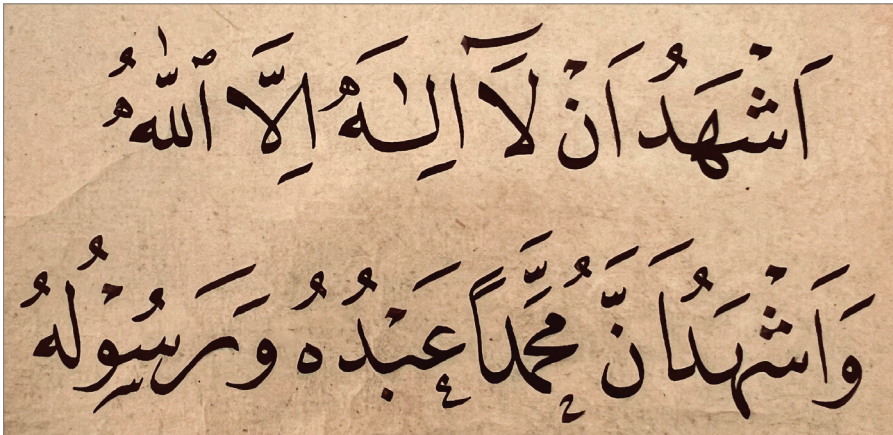 اَشْهَدُ اَنْ لَآ اِلٰهَ اِلَّا ٱللّٰهُ
وَاَشْهَدُ اَنَّ مُحَمَّدًا عَبْدُهُ وَرَسُوْلُهُ